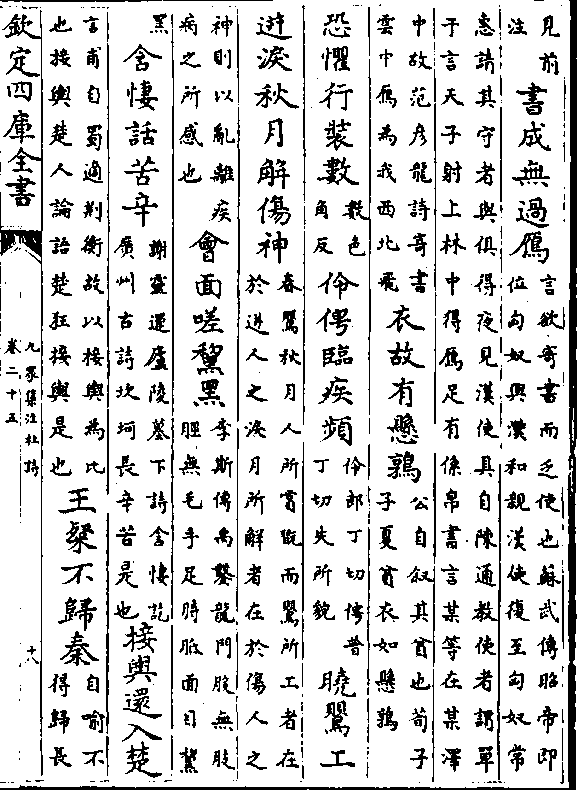 見前
注
書成無過鴈
言欲寄書而乏使也蘇武傳昭帝即
位匈奴與漢和親漢使復至匈奴常
惠請其守者與俱得夜見漢使具自陳通教使者謂單
于言天子射上林中得鴈足有係帛書言某等在某澤
中故范彦龍詩寄書
雲中鴈為我西北飛
衣故有懸鶉
公自叙其貧也荀子
子夏貧衣如懸鶉
恐懼行裝數
數色
角反
伶俜臨疾頻
伶郎丁切俜普
丁切失所貌
曉鸎工
迸淚秋月解傷神
春鸎秋月人所賞翫而鸎所工者在
於迸人之淚月所解者在於傷人之
神則以亂離疾
病之所感也
會面嗟黧黑
李斯傳禹鑿龍門股無胈
脛無毛手足胼胝面目黧
黑
含悽話苦辛
謝靈運廬陵墓下詩含悽訖
廣州古詩坎坷長辛苦是也
接輿還入楚
言甫自蜀適荆衡故以接輿為比
也接輿楚人論語楚狂接輿是也
王粲不歸秦
自喻不
得歸長
欽定四庫全書
九家集注杜詩
卷二十五
十八